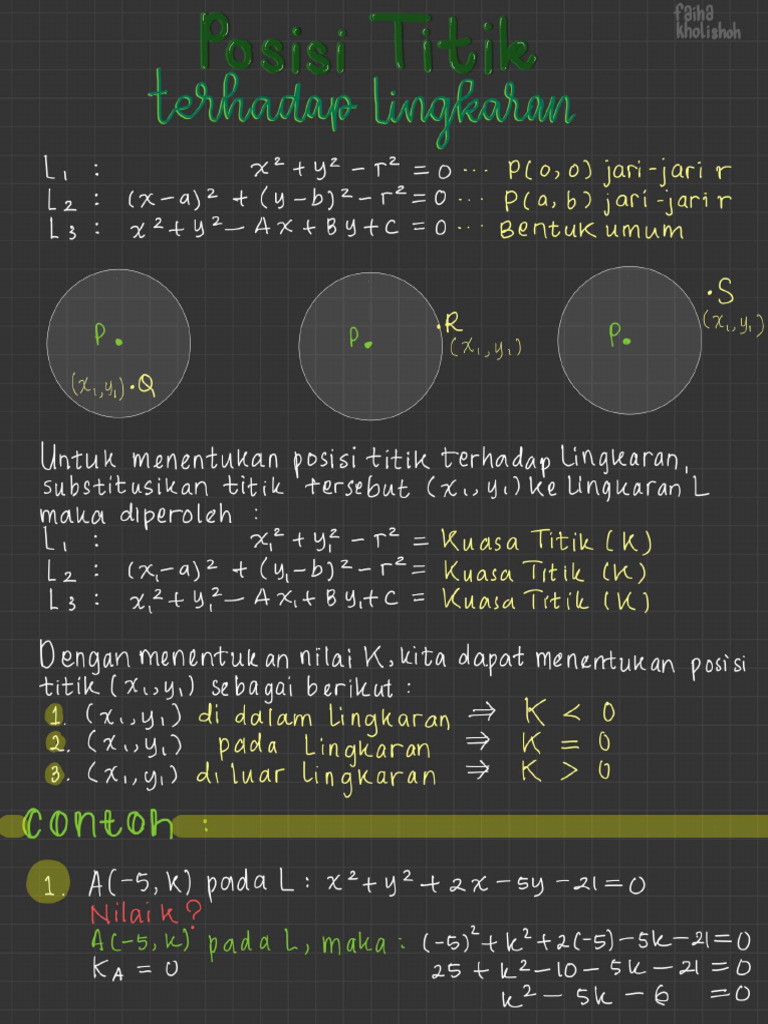 faiha
kholishoh
Posisi Titik
terhadap Lingkaran
L₁ : x² + y² - r² = 0 ... P(0,0) jari-jari r
L₂ : (x-a)² + (y-b)² - r² = 0 ... P(a,b) jari-jari r
L₃ : x² + y² - Ax + By + C = 0 ... Bentuk umum
P.
(x₁,y₁) . Q
P.
. R
(x₁,y₁)
P.
. S
(x₁,y₁)
Untuk menentukan posisi titik terhadap Lingkaran,
substitusikan titik tersebut (x₁,y₁) ke Lingkaran L
maka diperoleh :
L₁ : x₁² + y₁² - r² = Kuasa Titik (K)
L₂ : (x₁-a)² + (y₁-b)² - r² = Kuasa Titik (K)
L₃ : x₁² + y₁² - Ax₁ + By₁ + C = Kuasa Titik (K)
Dengan menentukan nilai K, kita dapat menentukan posisi
titik (x₁,y₁) sebagai berikut :
1. (x₁,y₁) di dalam Lingkaran ⇒ K < 0
2. (x₁,y₁) pada Lingkaran ⇒ K = 0
3. (x₁,y₁) di luar Lingkaran ⇒ K > 0
Contoh :
1. A(-5,k) pada L : x² + y² + 2x - 5y - 21 = 0
Nilai k?
A(-5,k) pada L, maka : (-5)² + k² + 2(-5) - 5k - 21 = 0
K_A = 0 25 + k² - 10 - 5k - 21 = 0
k² - 5k - 6 = 0